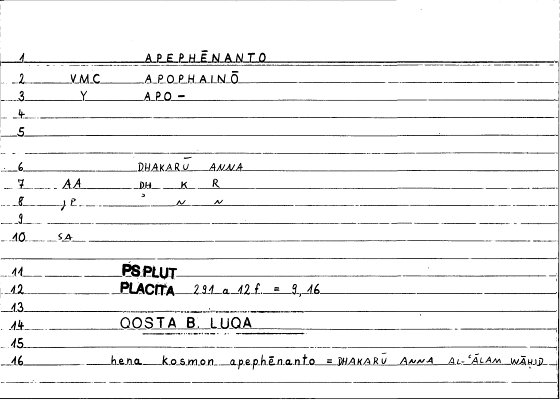 1 APEPHĒNANTO
2 V.M.C APOPHAINŌ
3 Y APO-
4
5
6 DHAKARŪ ANNA
7 AA DH K R
8 JP
9
10 SA
11 PS PLUT
12 PLACITA 291 a 12 f. = 9,16
13
14 QOSTA B. LUQA
15
16 hena kosmon apephēnanto = DHAKARŪ ANNA AL-ʿĀLAM WĀḤID